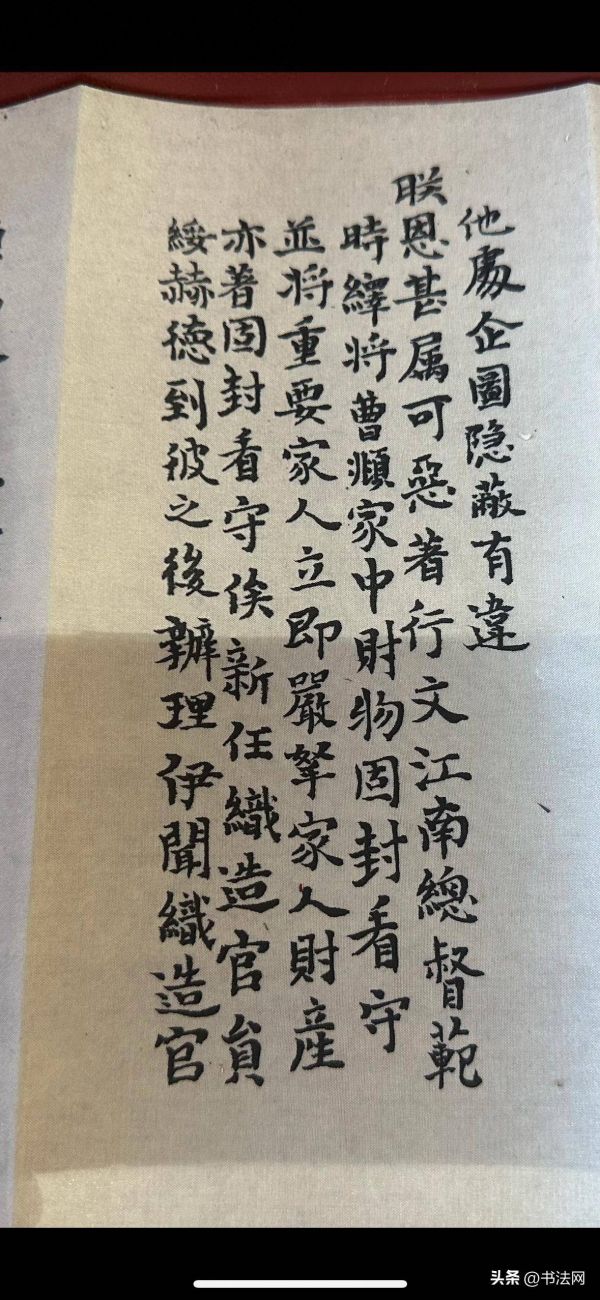 他處企圖隐蔽有違
朕恩甚属可惡著行文江南總督範
時繹将曹頫家中財物固封看守
並将重要家人立即嚴拏家人財産
亦著固封看守俟新任織造官員
綏赫德到彼之後辦理伊聞織造官
头条 @书法网